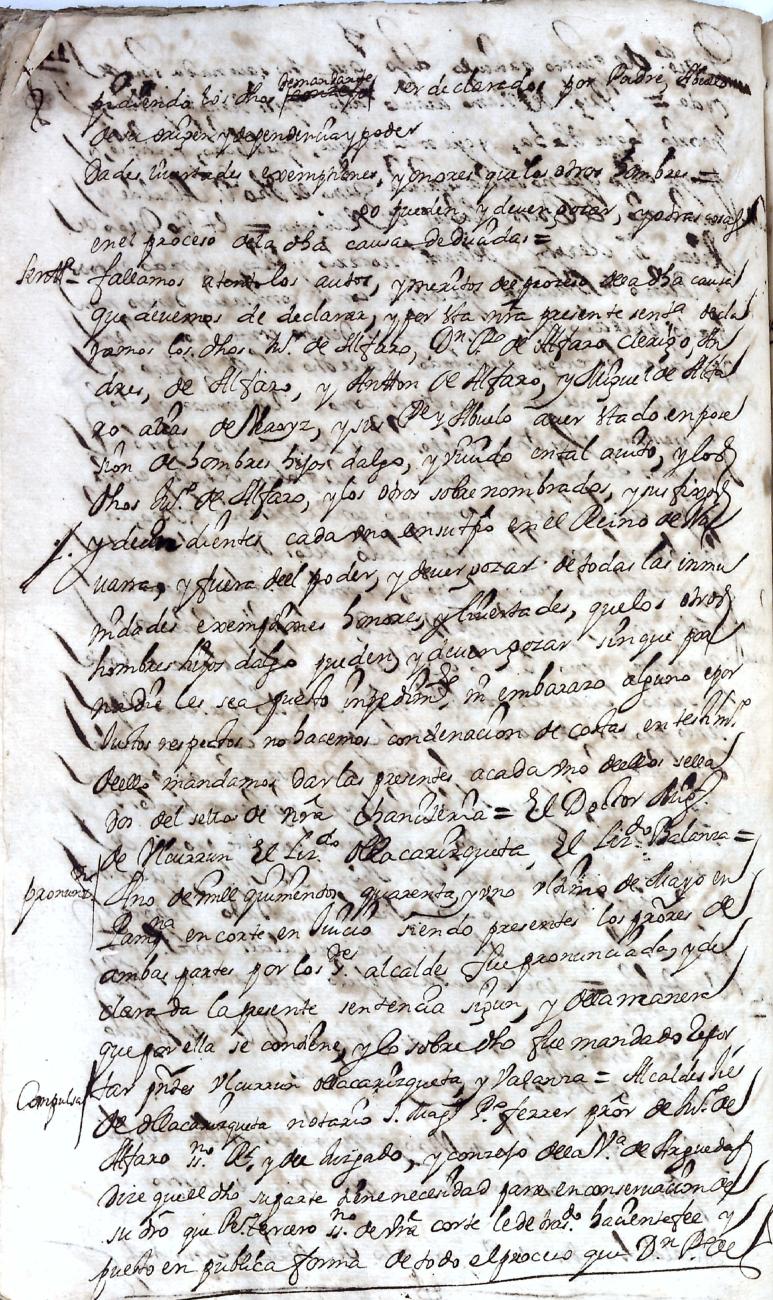 pidiendo los dhos demandantes ser declarados por Padre, Abuelo
de su origen y dependencia y poder
dades livertades exemphiones, y onores que los otros hombres =
pueden, y deven gozar, y otras cosas
en el proceso de la dha causa deducidas =
Sentª - fallamos atento los autos, y meritos del proceso de la dha causa
que devemos de declarar, y por esta nrã presente sentª decla
ramos los dhos Juº de Alfaro, Dn Pº de Alfaro clerigo, An
dres, de Alfaro, y Antton de Alfaro, y Miguel de Alfa
ro alias de y su Pe y Abuelo aver estado en pose
sion de hombres hijos dalgo, y viviendo en tal avito, y los
dhos Juº de Alfaro, y los otros sobre nombrados, y sus fixos
y decendientes cada uno en su tpo en el Reino de Na
varra, y fuera del poder, y dever gozar de todas las inmu
nidades exempciones honores, y livertades, que los otros
hombres hijos dalgo pueden, y deven gozar sin que por
nadie les sea puesto impedimto, ni embarazo alguno e por
Justos respectos no hacemos condenacion de costas, en testimº
de ello mandamos dar las presentes a cada uno de ellos sella
dos del sello de nrã Chancilleria = El Doctor
de Ulcurrun El Lizdo Ollacarizqueta, El Lizdo Balanza =
pronunn Año de mill quinientos quarenta, y uno ultimo de Mayo en
Pamna en corte en Juicio siendo presentes los prõres de
ambas partes por los Sres alcaldes fue pronunciada, y de
clarada la presente sentencia segun, y de la manera
que por ella se contiene, y lo sobre dho fue mandado repor
tar pntes Ulcurrun Ollacarizqueta, y Valanza = Alcaldes
Compulsa de Ollacarizqueta notario S. Magd Pº ferrer prõr de Juº de
Alfaro y de Juzgado, y conzejo de la Vª de Arguedas
Dize que el dho su parte tiene necesidad para en conservacion de
su drõ que de vrã corte le de trasdo haciente fee y
puesto en publica forma de todo el proceso que Dn Pº de